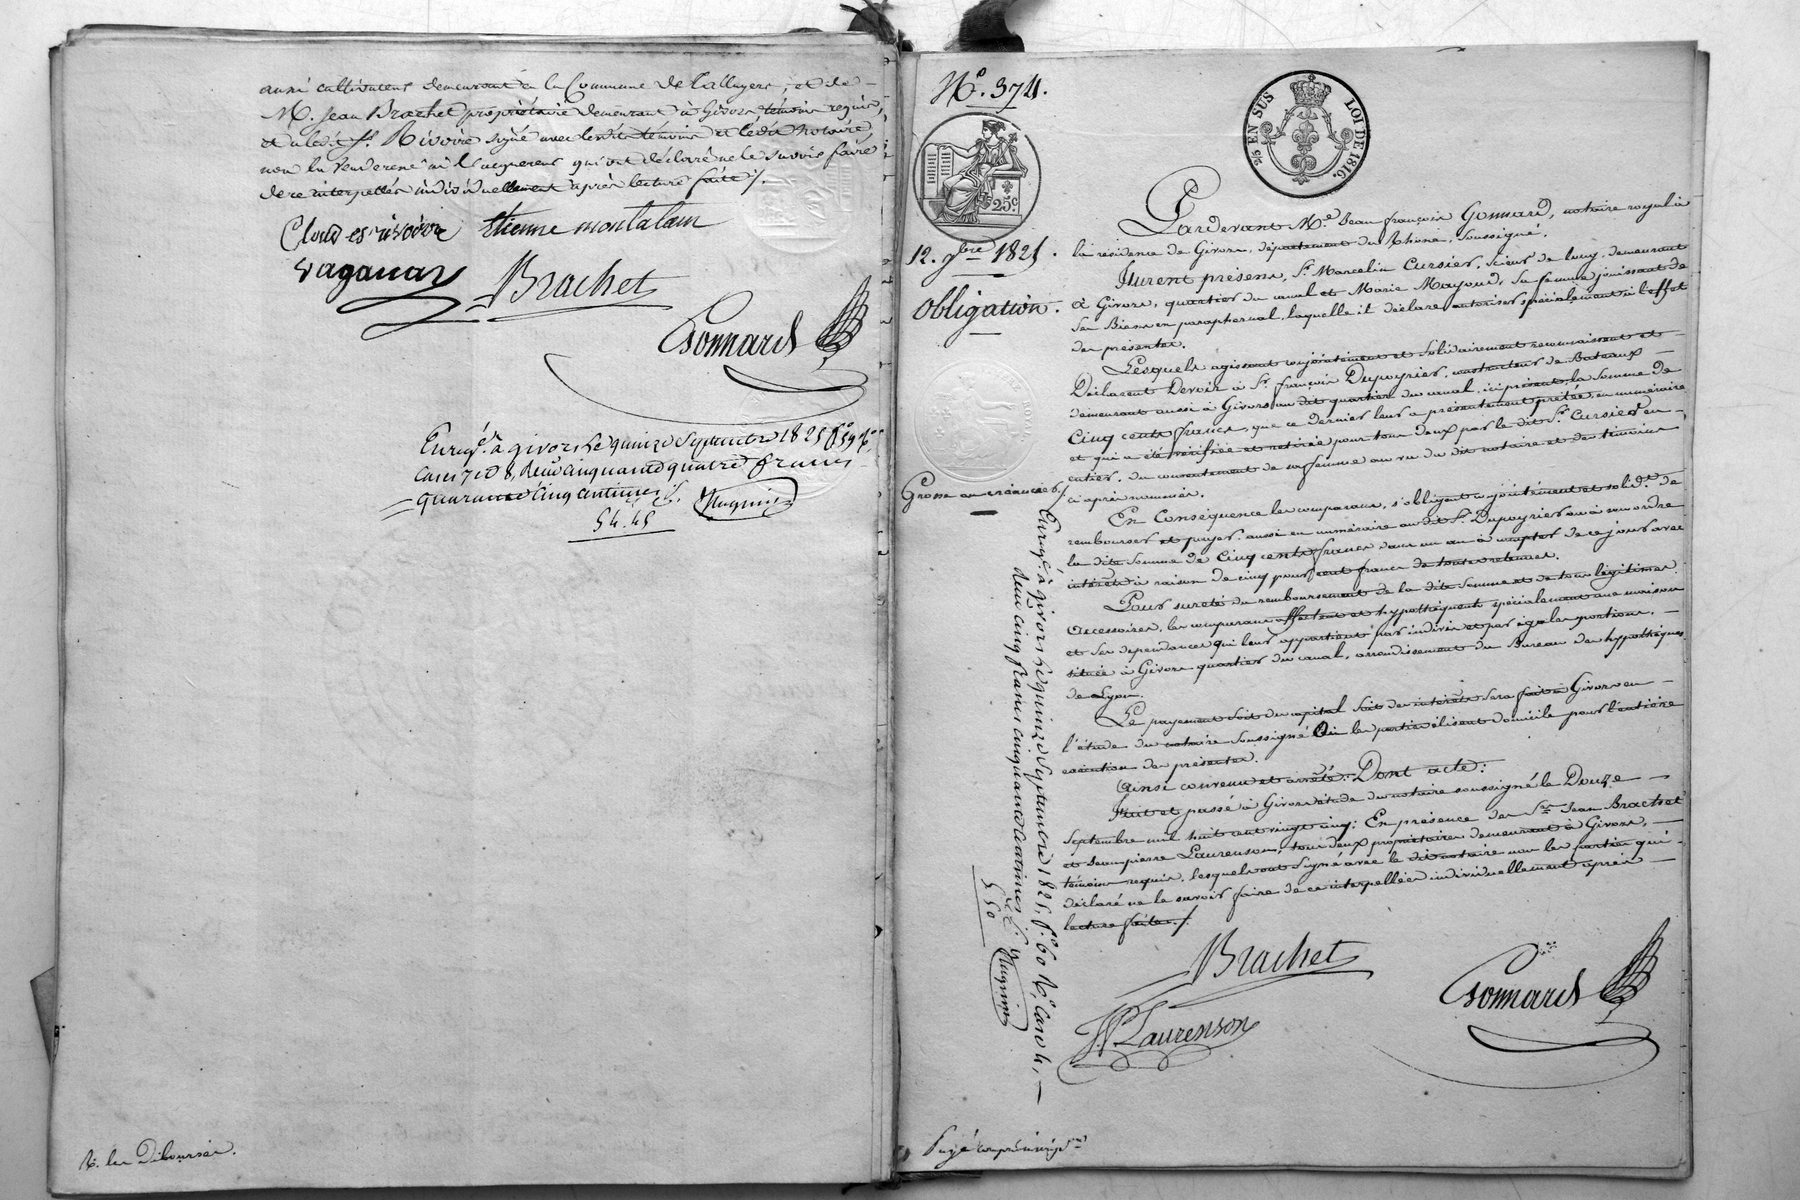 aussi cultivateur demeurant en la Commune de Talluyers, et de
M. Jean Brachet propriétaire demeurant à Givors, témoins requis,
et a ledit Sr. Rivoire signé avec lesdits témoins et ledit notaire,
non la venderesse ni l'acquereur qui ont déclaré ne le savoir faire
de ce interpellés individuellement après lecture faite /.
Claud es rivoire Etienne montalain
Vaganay
Brachet
Gonnard
Enreg.é à givors le quinze Septembre 1825 f.o 59 R.o
cases 7 et 8, deux cinquante quatre francs
quarante cinq centimes
54.45
R. les Déboursés.
N.o 374.
25c
12. 7bre 1825.
Obligation.
Grosse au créancier /.
25 EN SUS LOI DE 1816.
Pardevant M.e Jean françois Gonnard, notaire royal à
la résidence de Givors, département du Rhône, Soussigné.
Furent présens, Sr. Marcelin Cursier, Scieur de long, demeurant
à Givors, quartier du canal et Marie Mayoud, Sa femme jouissant de
Ses Biens en paraphernal, laquelle il déclare autoriser spécialement à l'effet
des présentes.
Lesquels agissant conjointement et Solidairement reconnaissent et
Déclarent Devoir à Sr. françois Dupoyrier, constructeur de Bateaux
demeurant aussi à Givors au dit quartier du canal, ici présent, la Somme de
Cinq cents francs, que ce dernier leur a présentement prêtée, en numéraire
et qui a été vérifiée et retirée pour tous deux par le dit Sr. Cursier en
entier, du consentement de sa femme au vu du dit notaire et des témoins
ci après nommés.
En conséquence les comparans, s'obligent conjointement et solid.t de
rembourser et payer aussi en numéraire au dit Sr. Dupoyrier ou à son ordre
la dite Somme de Cinq cents francs dans un an à compter de ce jour avec
intérêts à raison de cinq pour cent francs de toutes retenues.
Pour sureté du remboursement de la dite Somme et de tous légitimes
accessoires, les comparans affectent et hypothèquent spécialement une maison
et Ses dépendances qui leur appartient par indivis et par égales portions,
située à Givors quartier du canal, arrondissement du Bureau des hypothèques
de Lyon.
Le payement soit du capital soit des intérêts sera fait à Givors en
l'étude du notaire soussigné Où les parties élisent domicile pour l'entière
exécution des présentes.
Ainsi convenu et arrêté. Dont acte:
Fait et passé à Givors étude du notaire soussigné le Douze
Septembre mil huit cent vingt cinq; En présence des Srs Jean Brachet
et Jean pierre Laurenson, tous deux propriétaires demeurant à Givors,
témoins requis, lesquels ont Signé avec le dit notaire non les parties qui
déclaré ne le savoir faire de ce interpellées individuellement après
lecture faite. /.
Brachet
Gonnard
JP Laurenson
Enreg.é à givors le quinze Septembre 1825 f.o 60 R.o Case 4,
deux cinq francs cinquante centimes
5 50